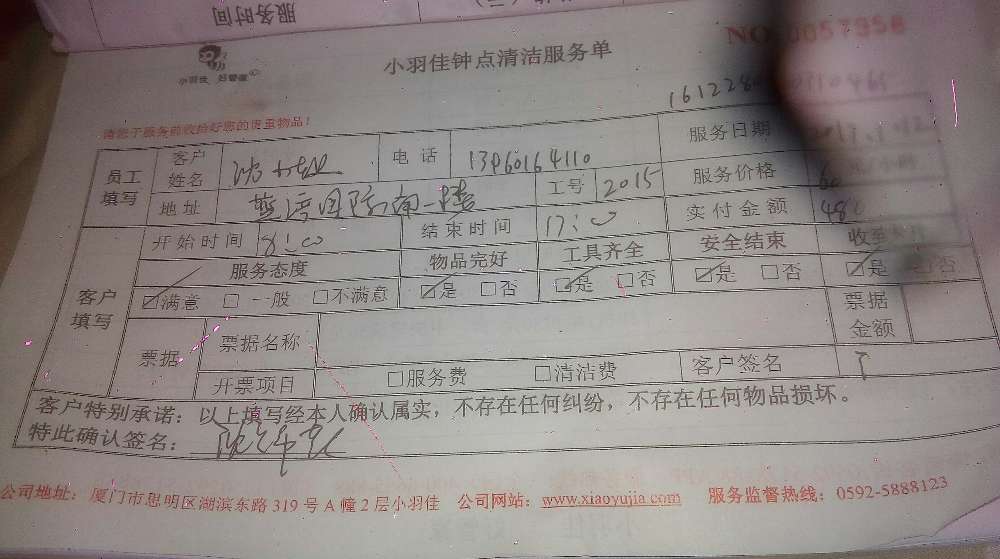 服务时间
小羽佳 好管家
小羽佳钟点清洁服务单
NO 0057958
请您于服务前收拾好您的贵重物品!
员工填写 客户姓名 电话 13960164110 服务日期
地址 工号 2015 服务价格
开始时间 8:00 结束时间 17:00 实付金额 480
客户填写 服务态度 物品完好 工具齐全 安全结束
☑满意 □一般 □不满意 ☑是 □否 ☑是 □否 ☑是 □否 ☑是 □否
票据 票据名称 票据金额
开票项目 □服务费 □清洁费 客户签名
客户特别承诺:以上填写经本人确认属实,不存在任何纠纷,不存在任何物品损坏。
特此确认签名:
公司地址:厦门市思明区湖滨东路319号A幢2层小羽佳 公司网站:www.xiaoyujia.com 服务监督热线:0592-5888123